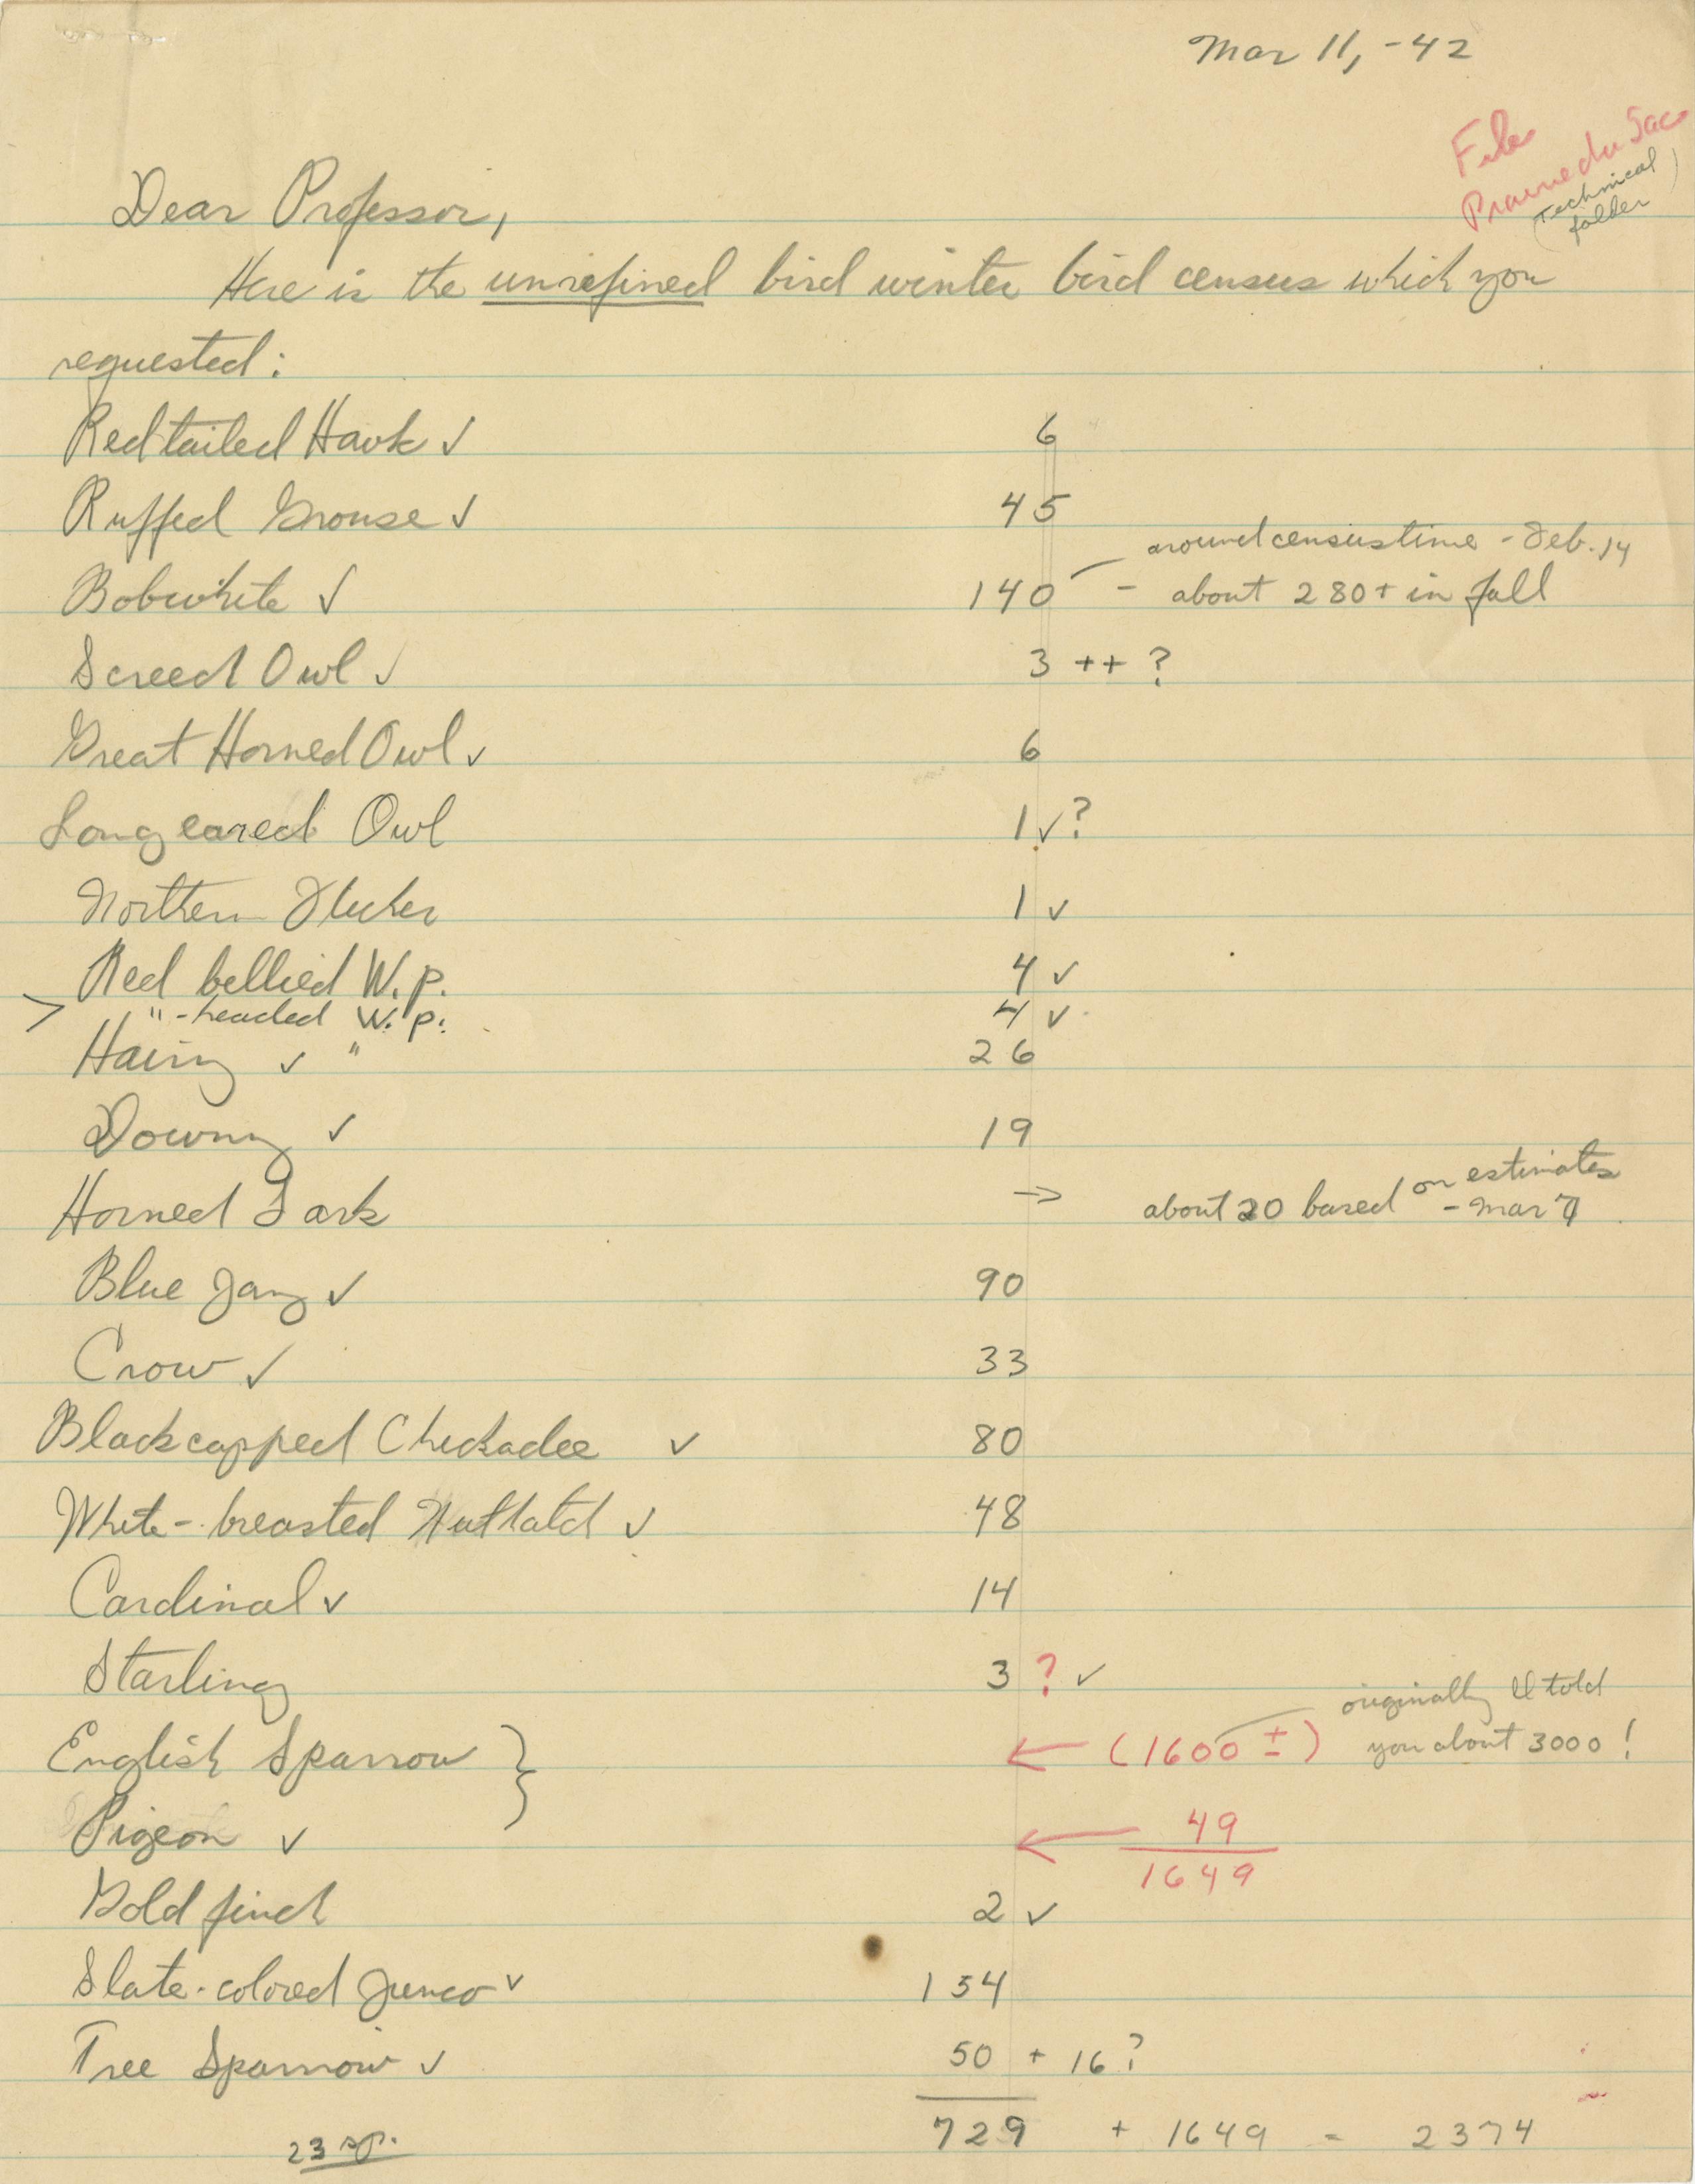 Mar 11, -42
File
Prairie du Sac
(Technical
folder)
Dear Professor,
Here is the unrefined bird winter bird census which you
requested:
Redtailed Hawk ✓ 6
Ruffed Grouse ✓ 45
around census time - Feb. 14
Bobwhite ✓ 140 - about 280+ in fall
Screech Owl ✓ 3 ++ ?
Great Horned Owl ✓ 6
Long eared Owl 1 ✓ ?
Northern Flicker 1 ✓
Red bellied W.p. 4 ✓
> " -headed W.p. 4 ✓
Hairy ✓ " 26
Downy ✓ 19
Horned Lark → about 20 based on estimates - Mar 7
Blue Jay ✓ 90
Crow ✓ 33
Blackcapped Chickadee ✓ 80
White-breasted Nuthatch ✓ 48
Cardinal ✓ 14
Starling 3 ? ✓
originally I told
English Sparrow } ← (1600 ±) you about 3000 !
Pigeon ✓ ← 49
1649
Gold finch 2 ✓
Slate-colored Junco ✓ 154
Tree Sparrow ✓ 50 + 16 ?
729 + 1649 = 2374
23 sp.